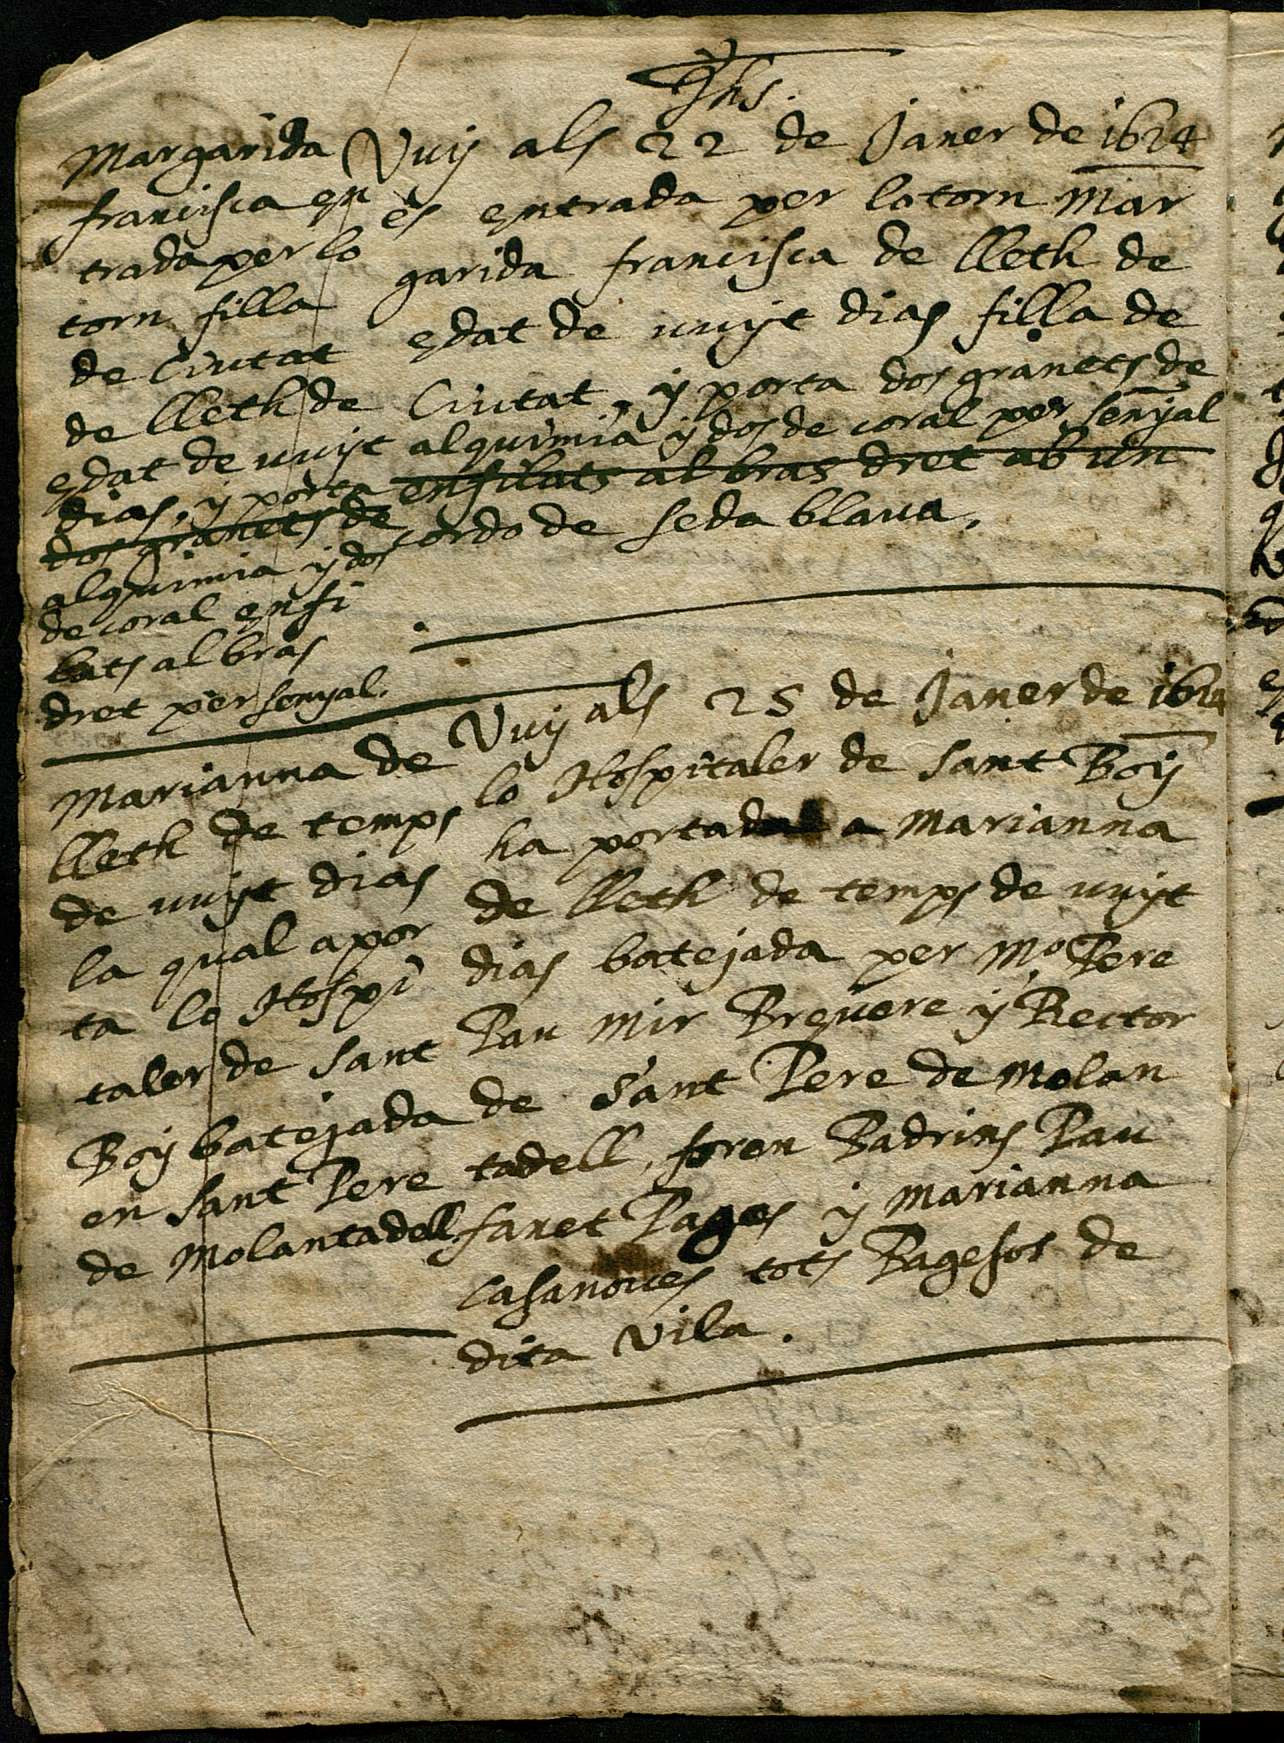 Jhs.
Margarida
francisca en
trada per lo
torn filla
de Ciutat
de lleth de
edat de vuyt
dias, y porta
dos granets de
alquimia y dos
de coral enfi
lats al bras
dret per senyal.
Vuy als 22 de Janer de 1624
es entrada per lo torn Mar
garida francisca de lleth de
edat de vuyt dias filla de
Ciutat, y porta dos granets de
alquimia y dos de coral per senyal
enfilats al bras dret ab un
cordo de seda blava.
Marianna de
lleth de temps
de vuyt dias
la qual apor
ta lo Hospi
taler de Sant
Boy batejada
en Sant Pere
de Molantadell
Vuy als 25 de Janer de 1624
lo Hospitaler de Sant Boy
ha portada a Marianna
de lleth de temps de vuyt
dias batejada per Mo. Pere
Pau Mir Prevere y Rector
de Sant Pere de Molan
tadell, foren Padrins Pau
fanet Pages y Marianna
Casanoves tots Pagesos de
dita Vila.